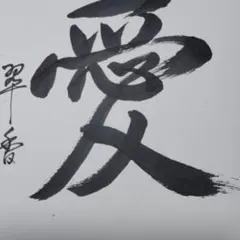 愛
翠香